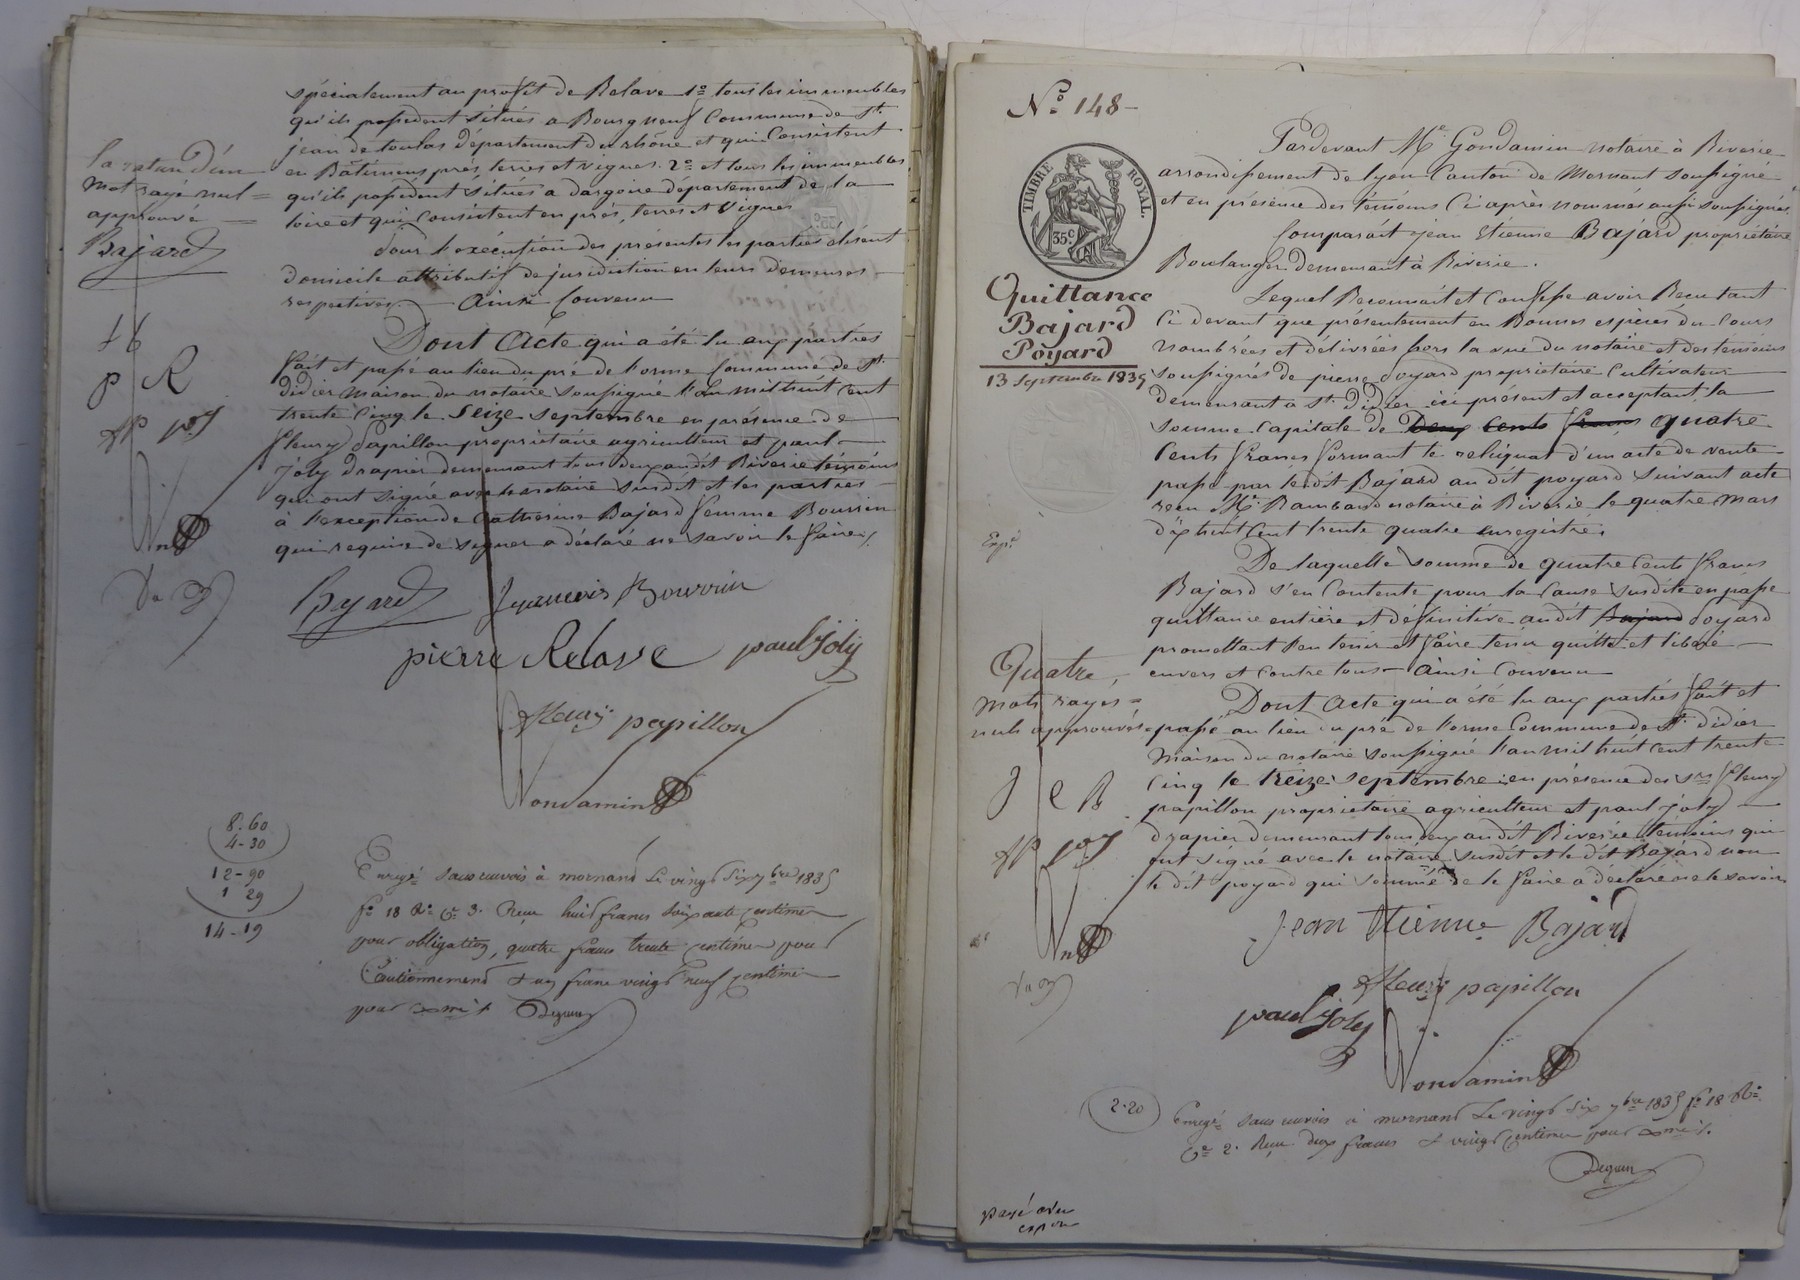 spécialement au profit de Relave 1o tous les immeubles
qu'ils possedent situés a Bourgneuf Commune de St.
jean de toulas département du rhône et qui Consistent
en Bâtimens, prés, terres et vignes. 2o et tous les immeubles
qu'ils possedent situés a dargoire departement de la
loire et qui Consistent en prés, terres et Vignes
Pour l'exécution des présentes les parties élisent
domicile attributif de juridiction en leurs demeures
respectives. Ainsi Convenu
Dont Acte qui a été lu aux parties
fait et passé au lieu du pré de l'orme Commune de St.
didier maison du notaire soussigné l'an mil huit cent
trente Cinq le Seize septembre en présence de
fleury papillon propriétaire agriculteur et paul
joly drapier demeurant tous deux audit Riverie témoins
qui ont signé avec le notaire susdit et les parties
à l'exception de Catherine Bajard femme Bourrin
qui requise de signer a déclaré ne savoir le faire.
la rature d'un
mot rayé nul
approuvé
Bajard
f b
p R
fp pj
Bajard françois Bourrin
pierre Relave paul joly
fleury papillon
Gondamin
8.60
4-30
12-90
1 29
14-19
Enregé sans renvois à mornant Le vingt Six 7bre 1835
fo 18 Ro Ce 3. Reçu huit francs Soixante centimes
pour obligation, quatre francs trente centimes pour
Cautionnement & un franc vingt neuf centimes
pour
No 148
TIMBRE ROYAL.
35 c
Quittance
Bajard
Poyard
13 Septembre 1835
Pardevant Me Gondamin notaire à Riverie
arrondissement de lyon Canton de Mornant soussigné
et en présence des témoins Ci après nommés aussi soussignés
Comparait jean Etienne Bajard propriétaire
Boulanger demeurant à Riverie.
Lequel Reconnait et Confesse avoir Reçu tant
Ci devant que présentement en Bonnes espèces du Cours
nombrées et délivrées hors la vue du notaire et des temoins
soussignés de pierre poyard propriétaire Cultivateur
demeurant a St. Didier ici présent et acceptant la
somme Capitale de Deux Cents francs quatre
Cents francs formant le reliquat d'un acte de vente
passé par ledit Bajard au dit poyard suivant acte
recu Me. Rambaud notaire à Riverie le quatre Mars
dix huit Cent trente quatre enregistré.
De laquelle somme de quatre Cents francs
Bajard s'en Contente pour la Cause susdite en passe
quittance entière et définitive audit Bajard poyard
promettant l'en tenir et faire tenir quitte et libéré
envers et contre tous. Ainsi Convenu
Dont Acte qui a été lu aux parties fait et
passé au lieu du pré de l'orme Commune de St. didier
Maison du notaire soussigné l'an mil huit cent trente
Cinq le treize septembre en présence des srs fleury
papillon propriétaire agriculteur et paul joly
drapier demeurant tous deux audit Riverie témoins qui
ont signé avec le notaire susdit et le dit Bajard non
le dit poyard qui sommé de le faire a déclaré ne le savoir
Expé
Quatre
Mots rayés
nuls approuvés
J e B
fp pj
jean Etienne Bajard
fleury papillon
paul joly
Gondamin
2.20
Enregé sans renvois à mornant Le vingt Six 7bre 1835 fo 18 Ro
Ce 2. Reçu deux francs & vingt centimes pour
payé avec